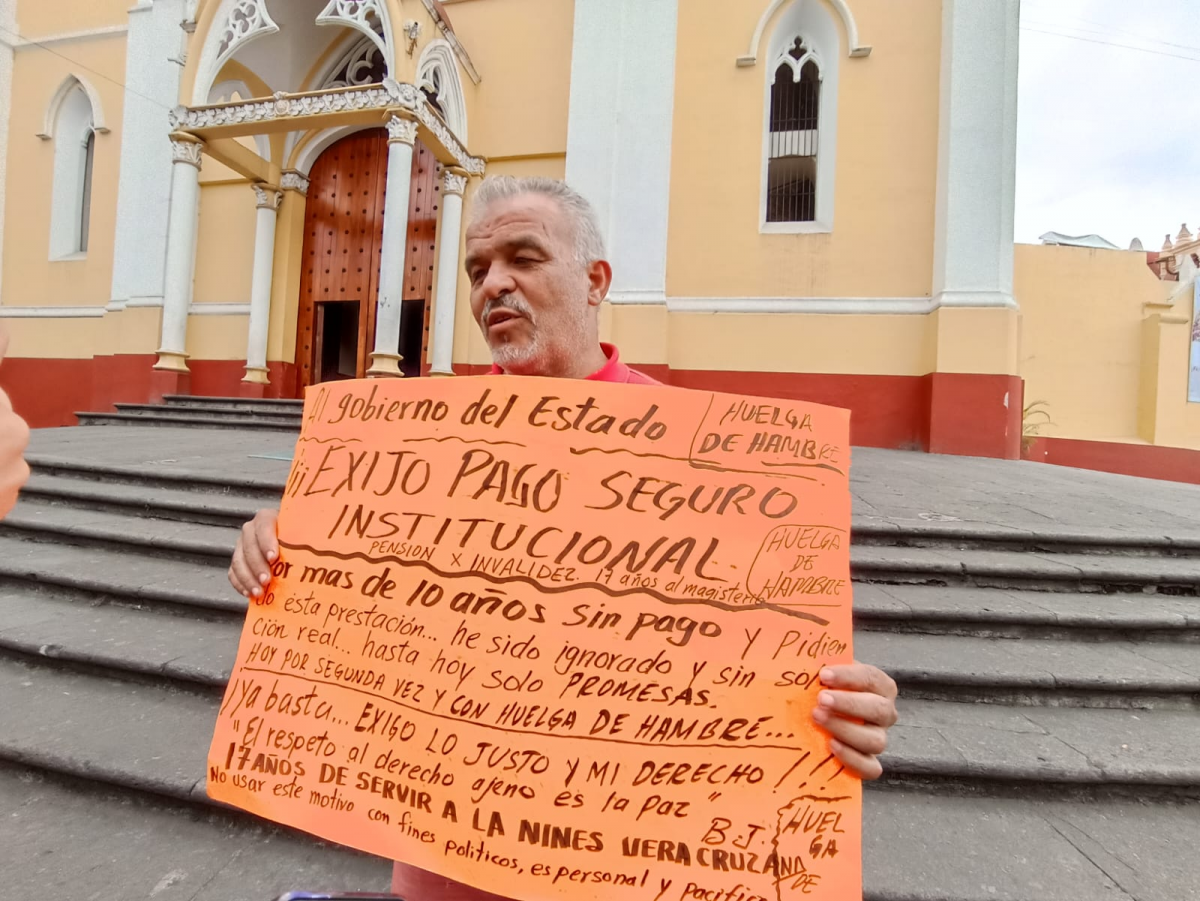 Al gobierno del Estado
HUELGA
DE HAMBRE
¡¡EXIJO PAGO SEGURO
INSTITUCIONAL
PENSION X INVALIDEZ. 17 años al magisterio
HUELGA
DE
HAMBRE
Por mas de 10 años sin pago y Pidien
do esta prestación... he sido ignorado y sin solu
ción real... hasta hoy solo PROMESAS.
HOY POR SEGUNDA VEZ Y CON HUELGA DE HAMBRE...
¡Ya basta... EXIGO LO JUSTO Y MI DERECHO!!!
"El respeto al derecho ajeno es la paz"
B.J.
17 AÑOS DE SERVIR A LA NINES VERACRUZANA
No usar este motivo con fines politicos, es personal y pacifico
HUEL
GA
DE